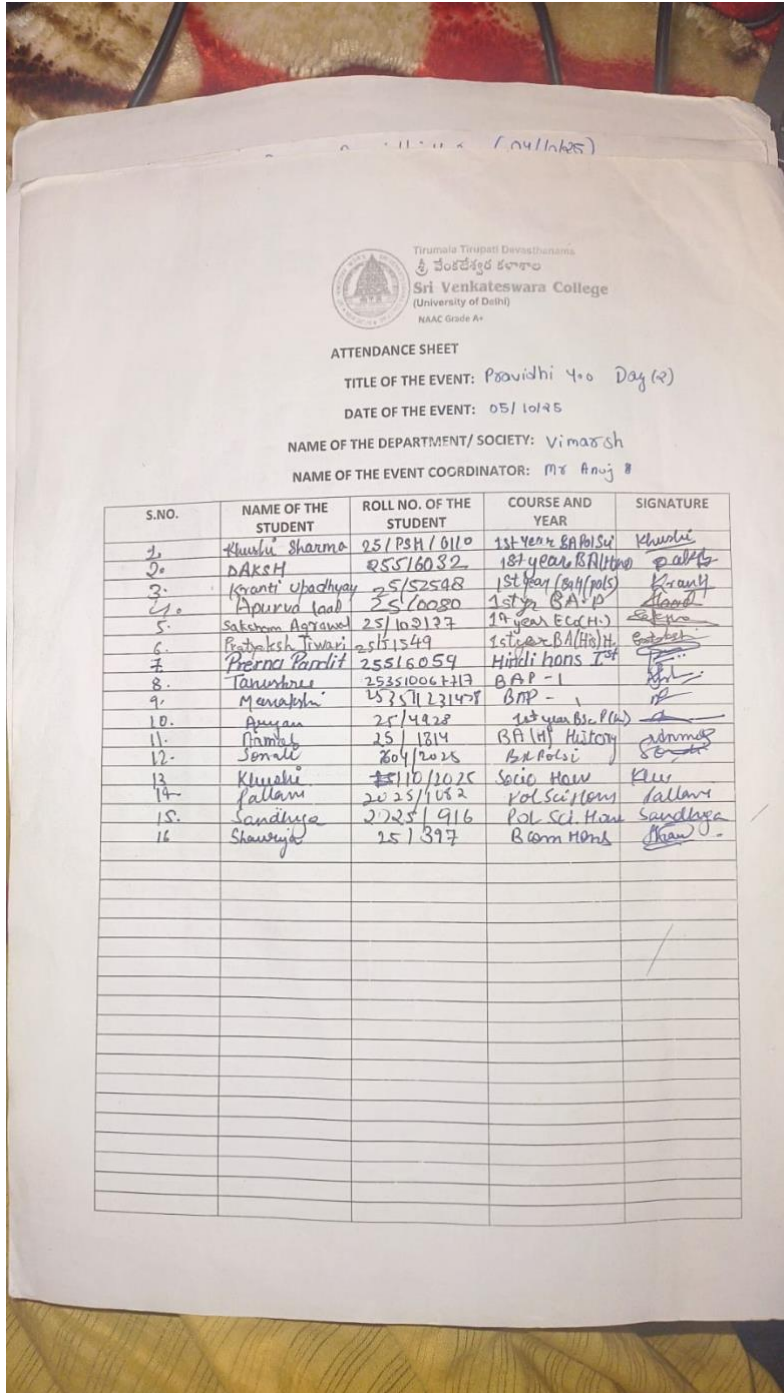 (04/10/25)
Tirumala Tirupati Devasthanams
శ్రీ వేంకటేశ్వర కళాశాల
Sri Venkateswara College
(University of Delhi)
NAAC Grade A+
ATTENDANCE SHEET
TITLE OF THE EVENT: Pravidhi 4.0 Day (2)
DATE OF THE EVENT: 05/10/25
NAME OF THE DEPARTMENT/ SOCIETY: Vimarsh
NAME OF THE EVENT COORDINATOR: Mr Anuj
S.NO. NAME OF THE STUDENT ROLL NO. OF THE STUDENT COURSE AND YEAR SIGNATURE
1. Khushi Sharma 25/PSH/0110 1st Year BA Pol Sci Khushi
2. DAKSH 25516032 1st year BA(Hons) Daksh
3. Kranti Upadhyay 25/52548 1st year (BAH/pols) Kranti
4. Apurva 25/0080 1st yr BA-P
5. Saksham Agrawal 25/102177 1st year ECO(H.)
6. Pratyaksh Tiwari 25/51549 1st year BA(Hs)H.
7 Prerna Pandit 25516059 Hindi hons Ist
8. Tanushree 253510067717 BAP - 1
9. Meenakshi BAP - 1
10. Aryan 25/4928 1st year BSc P(
11. 25/1814 BA(H) History
12. Sonali 604/2025 BA Polsi
13 Khushi /10/2025 Socio Hons Khu
14 Pallavi 2025/1082 Pol Sci Hons Pallavi
15. Sandhya 2025/916 Pol Sci. Hons Sandhya
16 Shaurya 25/397 B com Hons